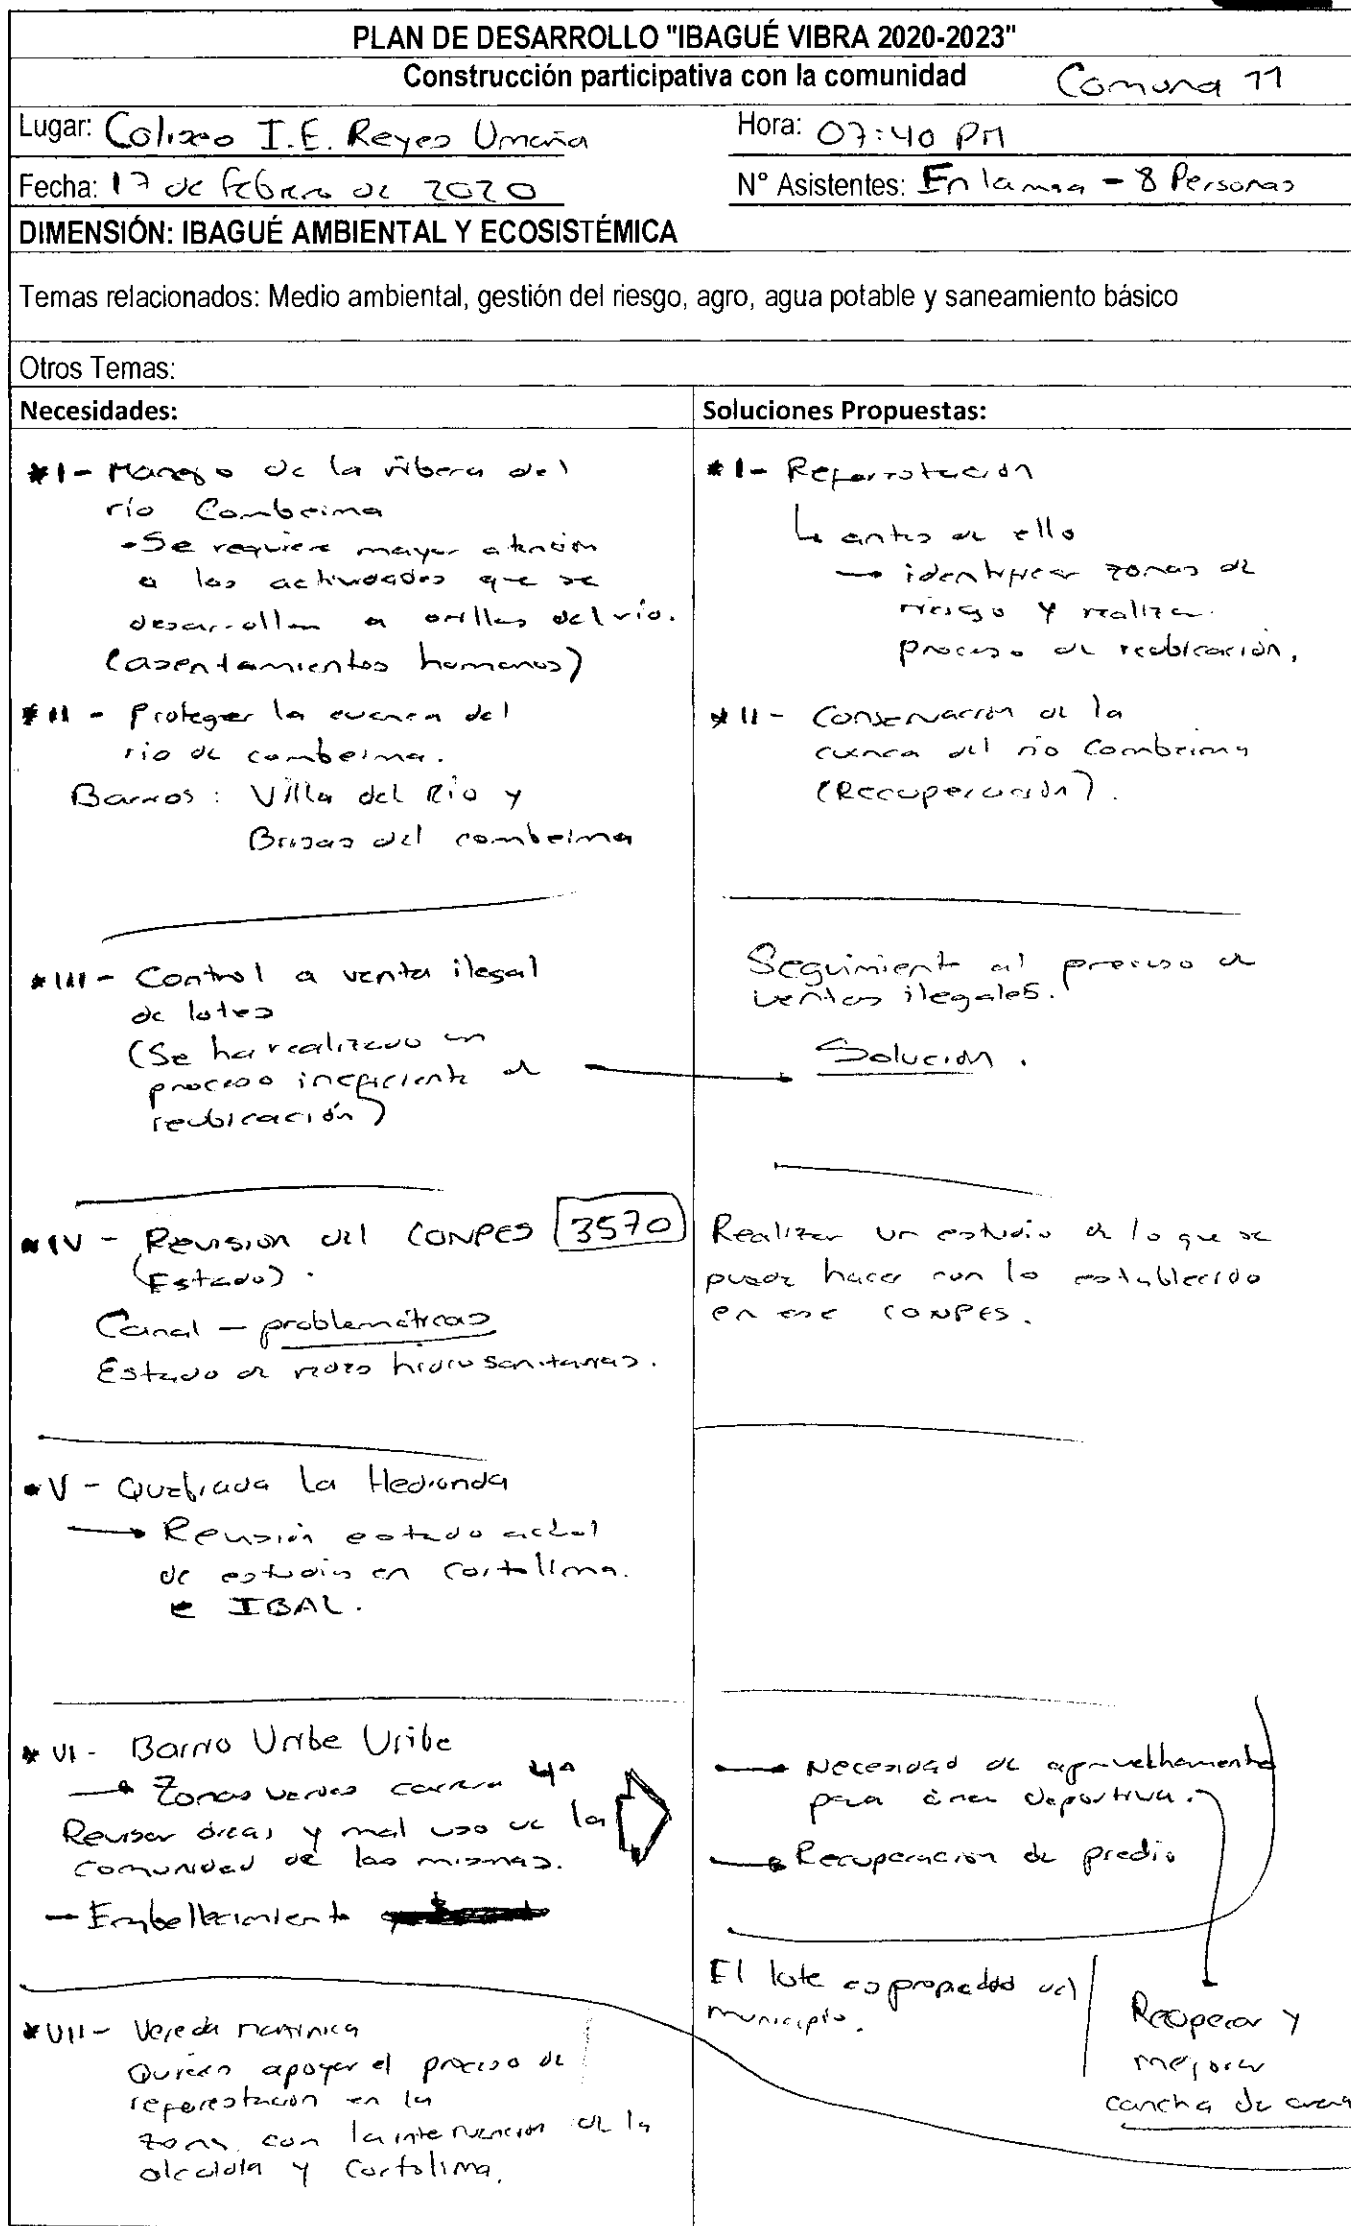 PLAN DE DESARROLLO "IBAGUÉ VIBRA 2020-2023"
Construcción participativa con la comunidad Comuna 11
Lugar: Coliseo I.E. Reyes Umaña
Hora: 07:40 PM
Fecha: 17 de febrero de 2020
N° Asistentes: En la mesa - 8 Personas
DIMENSIÓN: IBAGUÉ AMBIENTAL Y ECOSISTÉMICA
Temas relacionados: Medio ambiental, gestión del riesgo, agro, agua potable y saneamiento básico
Otros Temas:
Necesidades:
*I- Manejo de la ribera del
río Combeima
-Se requiere mayor atención
a las actividades que se
desarrollan a orillas del río.
(asentamientos humanos)
*II - Proteger la cuenca del
rio de combeima.
Barrios: Villa del Río y
Brisas del combeima
*III- Control a venta ilegal
de lotes
(Se ha realizado un
proceso ineficiente de
reubicación)
*IV - Revisión del CONPES 3570
(Estado).
Canal - problemáticas
Estado de redes hidrosanitarias.
*V - Quebrada La Hedionda
→ Revisión estado actual
de estudio en Cortolima.
e IBAL.
*VI- Barrio Uribe Uribe
→ Zonas verdes carrera 4ª
Revisar áreas y mal uso de la
comunidad de las mismas.
- Embellecimiento
*VII- Vereda martinica
Quieren apoyar el proceso de
reforestación en la
zona, con la intervención de la
alcaldía y Cortolima.
Soluciones Propuestas:
*I- Reforestación
↳ antes de ello
→ identificar zonas de
riesgo y realizar
proceso de reubicación.
*II- Conservación de la
cuenca del río Combeima
(Recuperación).
Seguimiento al proceso de
ventas ilegales.
Solución.
Realizar un estudio de lo que se
puede hacer con lo establecido
en ese CONPES.
→ Necesidad de aprovechamiento
para área deportiva.
→ Recuperación de predio
El lote es propiedad del
municipio.
Recuperar y
mejorar
cancha de arena